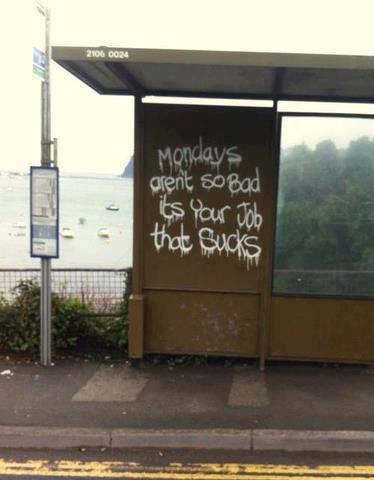 2106 0024
Mondays
arent so Bad
its Your Job
that Sucks